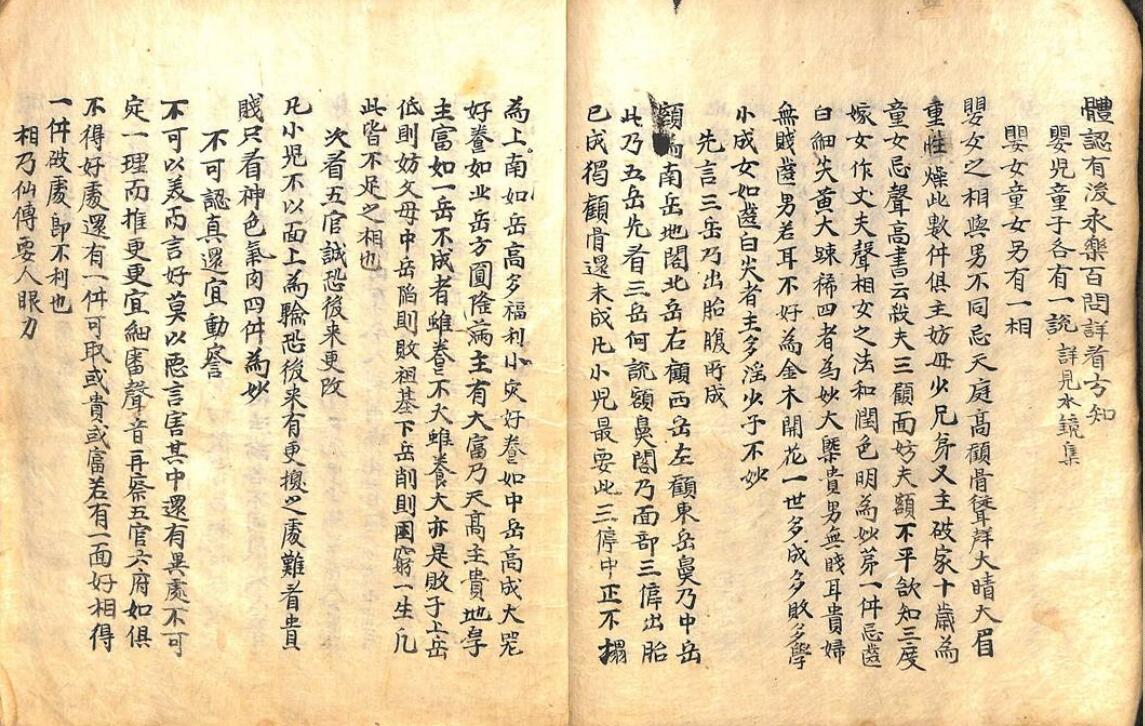 體認有浚永樂百問詳看方知
嬰兒童子各有一說 詳見水鏡集
嬰女童女另有一相
嬰女之相與男不同忌天庭高顴骨聳聲大睛大眉
重性燥此數件俱主妨母少兄弟又主破家十歲為
童女忌聲高書云殺夫三顴面妨夫額不平欲知三度
嫁女作丈夫聲相女之法和潤色明為妙苐一件忌齒
白細尖黃大踈稀四者為妙大槩貴男無賤耳貴婦
無賤齒男若耳不好為金木開花一世多成多敗多學
小成女如齒白尖者主多淫少子不妙
先言三岳乃出胎腹所成
額為南岳地閣北岳右顴西岳左顴東岳鼻乃中岳
此乃五岳先看三岳何說額鼻閣乃面部三停出胎
已成獨顴骨還未成凡小兒最要此三停中正不搨
為上南如岳高多福利小災好養如中岳高成大器
好養如北岳方圓隆滿主有大富乃天高主貴地厚
主富如一岳不成者雖養不大雖養大亦是敗子上岳
低則妨父母中岳陷則敗祖基下岳削則困窮一生凡
此皆不足之相也
次看五官誠恐後來更改
凡小兒不以面上為騐恐後來有更換之處難看貴
賤只看神色氣肉四件為妙
不可認真還宜動察
不可以美而言好莫以惡言害其中還有異處不可
定一理而推更更宜細審聲音再察五官六府如俱
不得好處還有一件可取或貴或富若有一面好相得
一件破處即不利也
相乃仙傳要人眼力